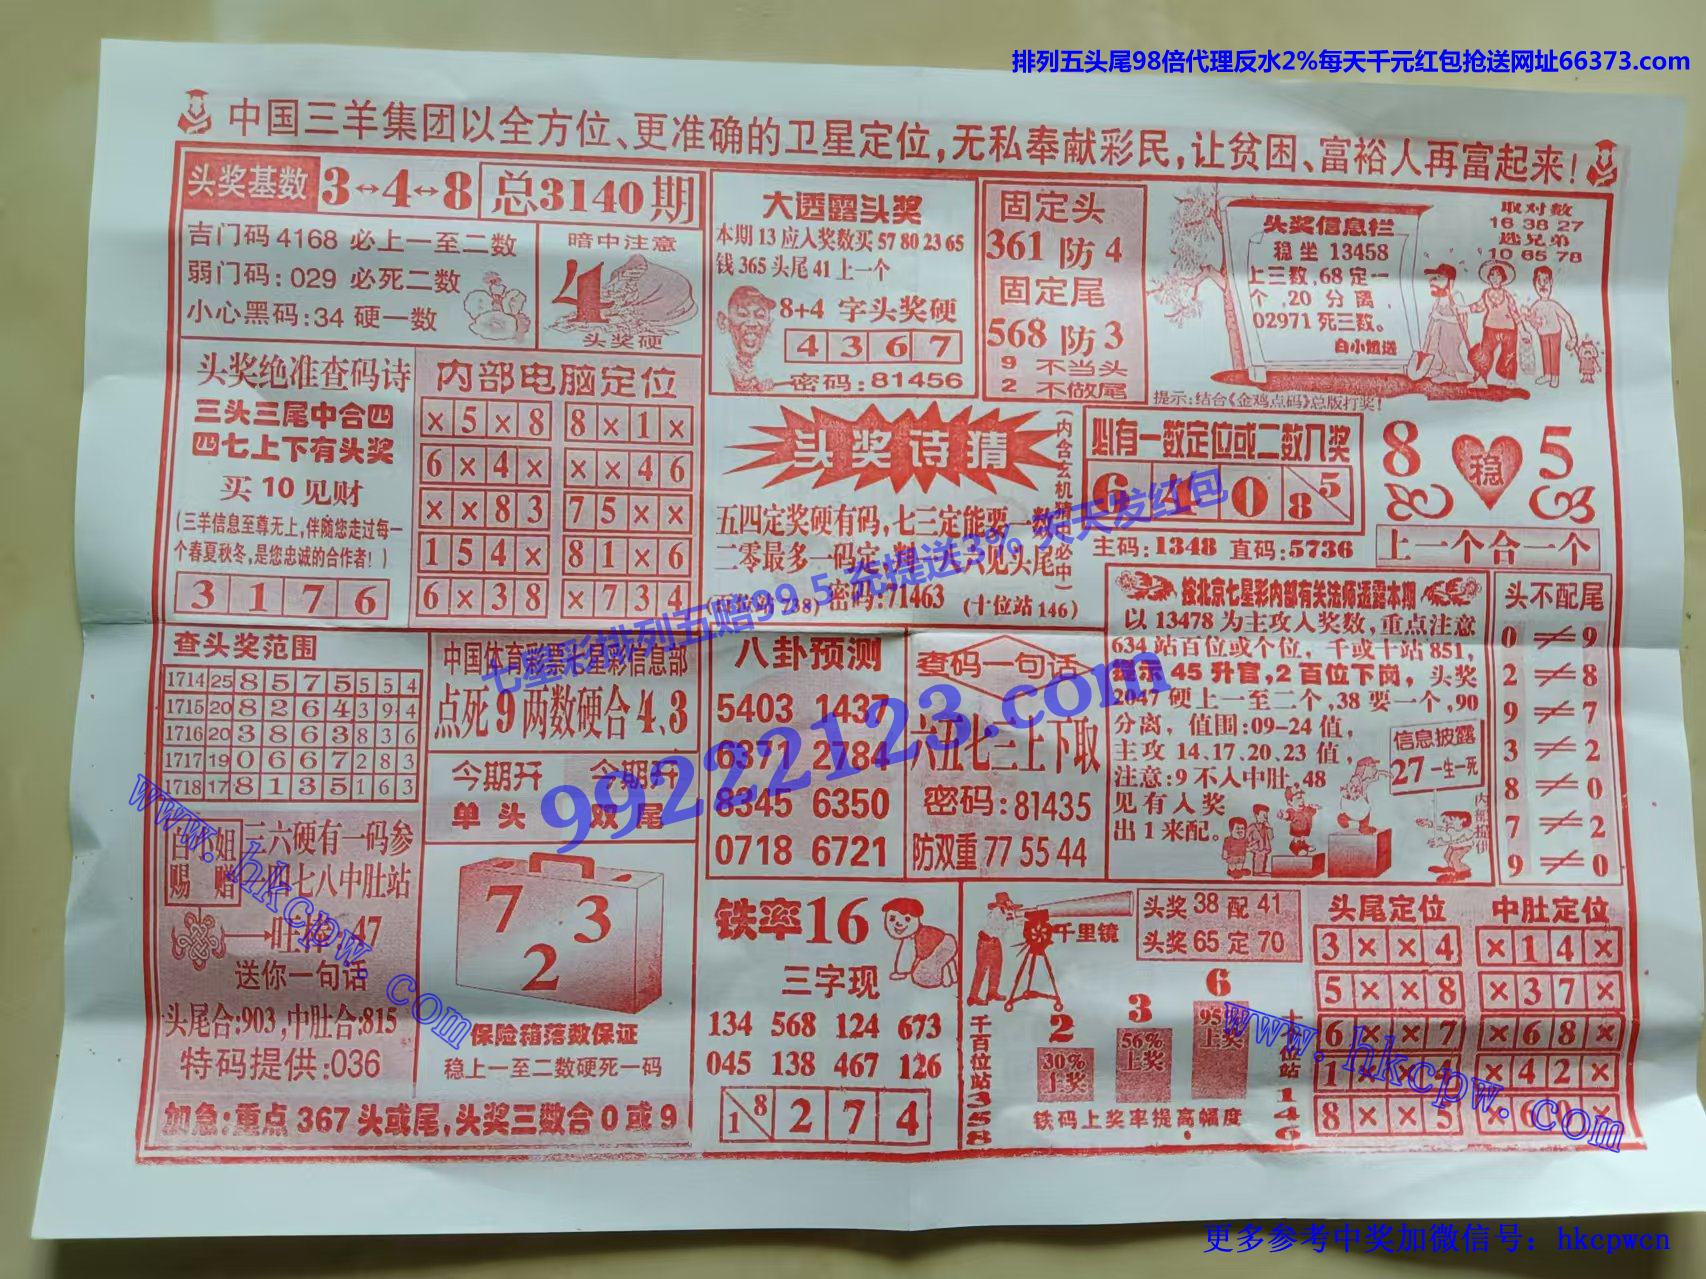 排列五头尾98倍代理反水2%每天千元红包抢送网址66373.com
中国三羊集团以全方位、更准确的卫星定位,无私奉献彩民,让贫困、富裕人再富起来!
头奖基数 3↔4↔8 总3140期
吉门码4168 必上一至二数
弱门码:029 必死二数
小心黑码:34 硬一数
暗中注意
4
头奖硬
大透露头奖
本期13应入奖数买57 80 23 65
钱365头尾41上一个
8+4 字头奖硬
4 3 6 7
密码:81456
固定头
361 防4
固定尾
568 防3
9 不当头
2 不做尾
头奖信息栏
稳坐 13458
上三数,68定一
个,20分离,
02971死三数。
白小姐送
取对数
16 38 27
选兄弟
10 65 78
提示:结合《金鸡点码》总版打奖!
头奖绝准查码诗
三头三尾中合四
四七上下有头奖
买10见财
(三羊信息至尊无上,伴随您走过每一
个春夏秋冬,是您忠诚的合作者!)
3 1 7 6
内部电脑定位
× 5 × 8 8 × 1 ×
6 × 4 × × × 4 6
× × 8 3 7 5 × ×
1 5 4 × 8 1 × 6
6 × 3 8 × 7 3 4
头奖诗猜
五四定奖硬有码,七三定能要一数
二零最多一码定,
六见头尾
密码:71463 (十位站146)
必有一数定位或二数入奖
6 4 0 8 5
主码:1348 直码:5736
8 稳 5
上一个合一个
七星彩排列五赔99.5 充提送3% 天天发红包
99222123.com
查头奖范围
1714 25 8 5 7 5 5 5 4
1715 20 8 2 6 4 3 9 4
1716 20 3 8 6 3 8 3 6
1717 19 0 6 6 7 2 8 3
1718 17 8 1 3 5 1 6 3
中国体育彩票七星彩信息部
点死9两数硬合4、3
今期开 今期开
单头 双尾
八卦预测
5403 1437
6371 2784
8345 6350
0718 6721
查码一句话
六五七三上下取
密码:81435
防双重77 55 44
按北京七星彩内部有关法师透露本期
以13478为主攻入奖数,重点注意
634站百位或个位,千或十站851,
提示45升官,2百位下岗,头奖
2047硬上一至二个,38要一个,90
分离,值围:09-24值,
主攻14、17、20、23值,
注意:9不入中肚,48
见有入奖
出1来配。
信息披露
27一生一死
内部提供
头不配尾
0≠9
2≠8
9≠7
3≠2
8≠0
7≠2
9≠0
白小姐
赐赠
三六硬有一码参
四七八中肚站
47
送你一句话
头尾合:903,中肚合:815
特码提供:036
7 3
2
保险箱落数保证
稳上一至二数硬死一码
加急:重点367头或尾,头奖三数合0或9
铁率16
三字现
134 568 124 673
045 138 467 126
1 8 2 7 4
千里镜
头奖38配41
头奖65定70
2 3 6
30%上奖
56%上奖
千百位站358
铁码上奖率提高幅度
头尾定位
3 × × 4
5 × × 8
6 × × 7
8 × × 5
中肚定位
× 1 4 ×
× 3 7 ×
× 6 8 ×
× 4 2 ×
www.hkcpw.com
www.hkcpw.com
更多参考中奖加微信号: hkcpwcn